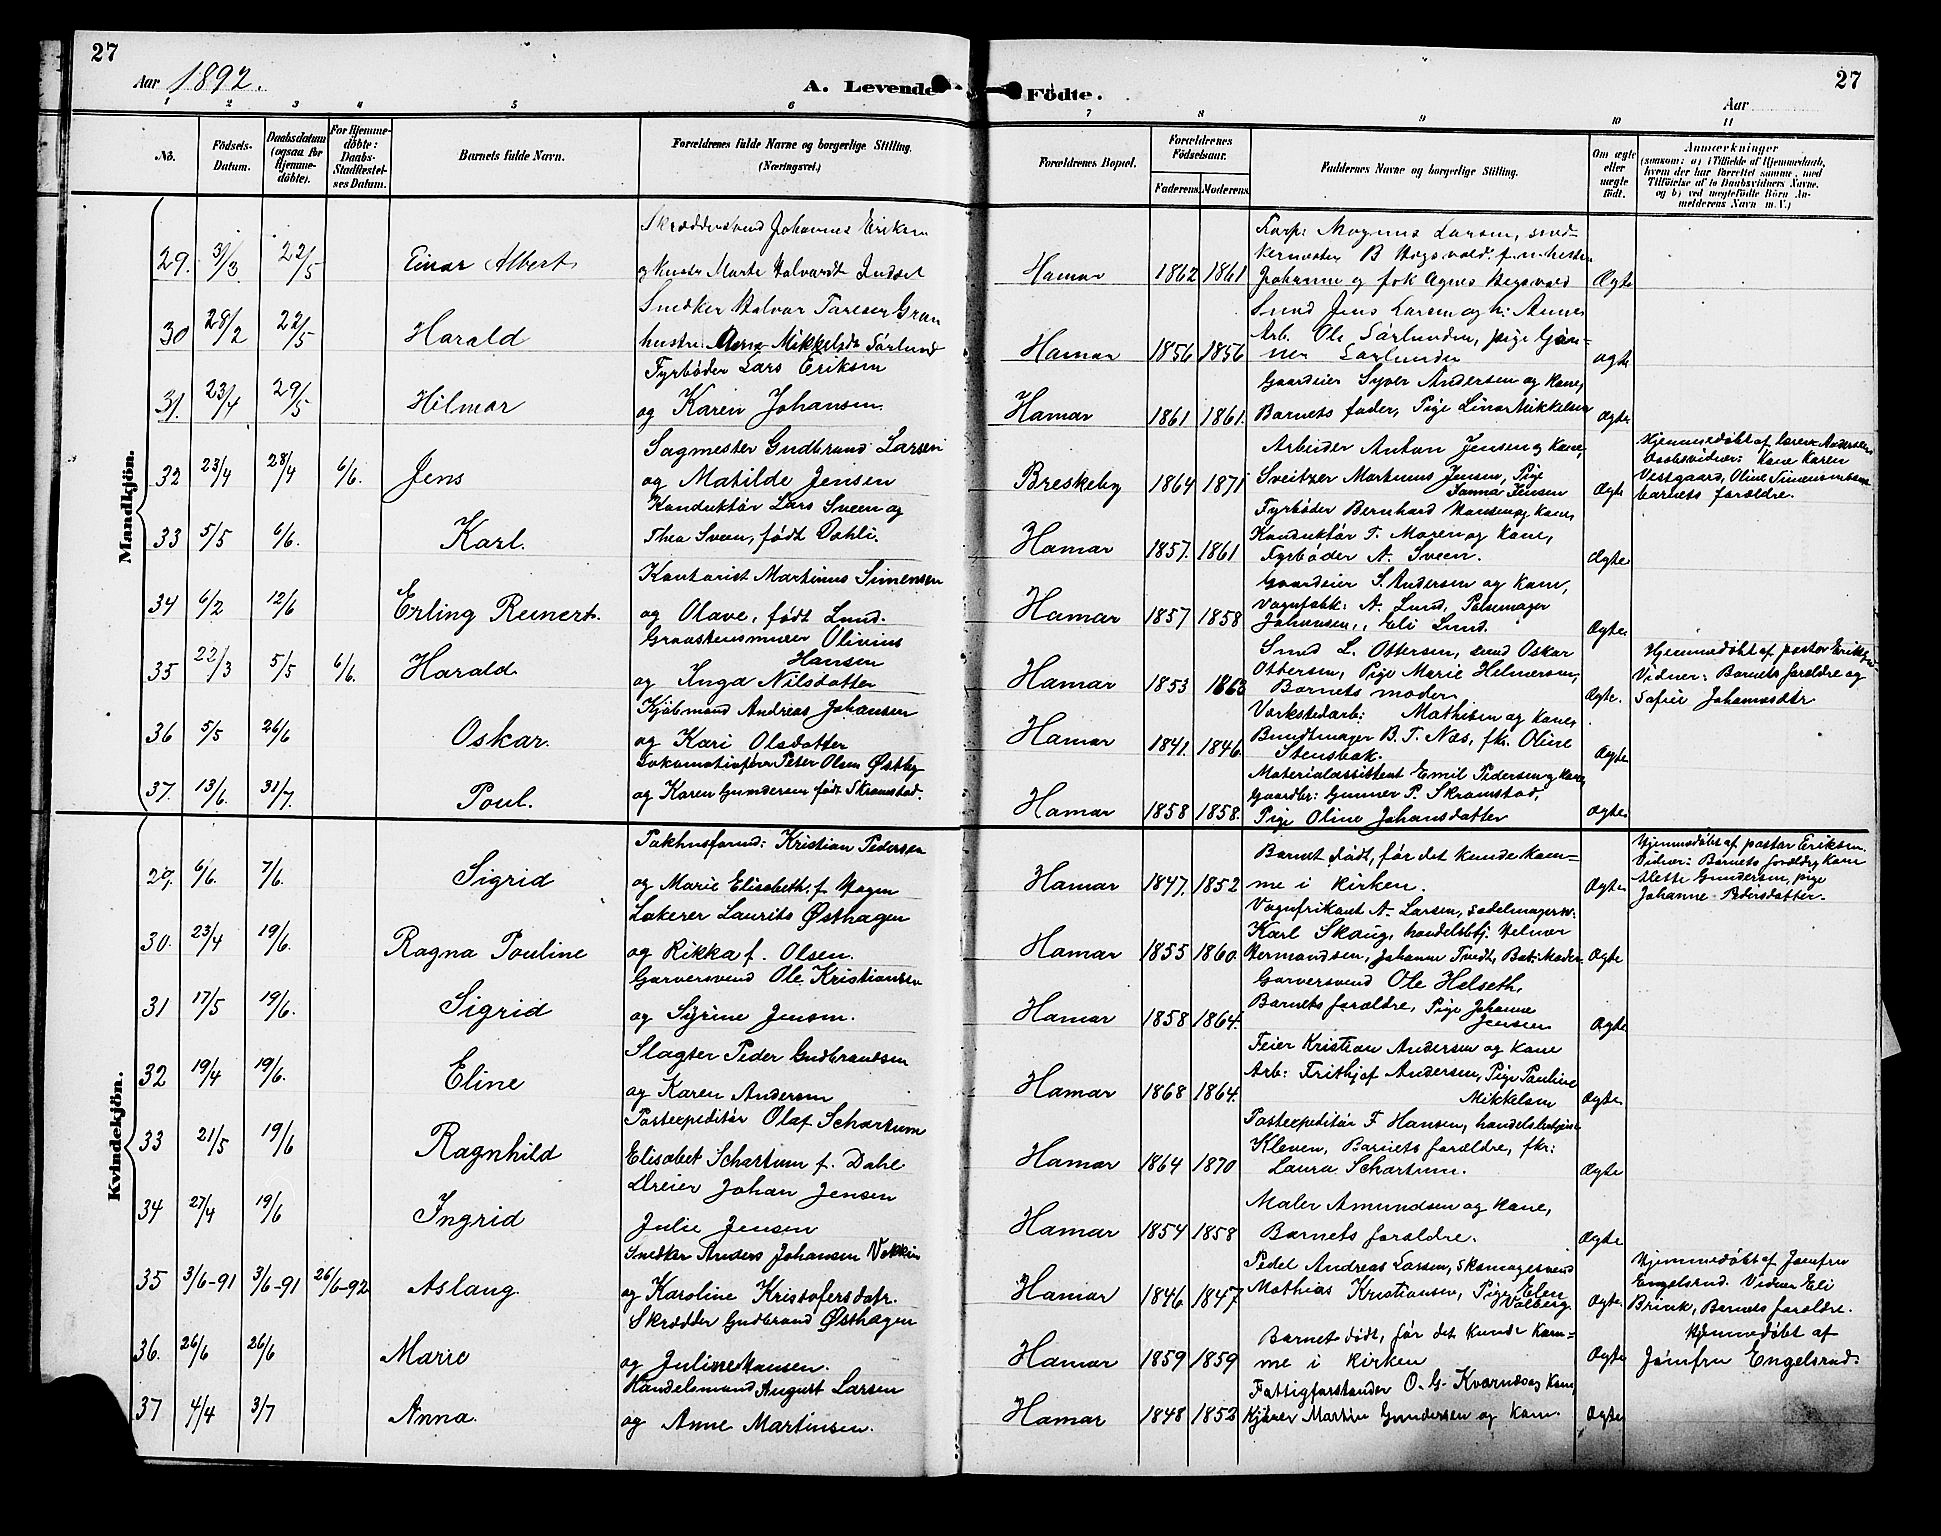 27
27
Aar 1892.
A. Levende Födte.
Aar
1 2 3 4 5 6 7 8 9 10 11
No.
Födsels-Datum.
Daabsdatum (ogsaa for Hjemme-döbte).
For Hjemme-döbte: Daabs-Stadfæstel-ses Datum.
Barnets fulde Navn.
Forældrenes fulde Navne og borgerlige Stilling. (Næringsvei.)
Forældrenes Bopæl.
Forældrenes Födselsaar.
Faderens. Moderens.
Faddernes Navne og borgerlige Stilling.
Om ægte eller uægte födt.
Anmærkninger
(saasom: a) i Tilfælde af Hjemmedaab, hvem der har forrettet samme, med Tilföielse af to Daabsvidners Navne, og b) ved uægtefödte Börn An-melderens Navn m. V.)
Mandkjön.
29. 31/3 22/5 Einar Albert
Skræddersvend Johannes Eriksen
og Hustr. Marte Halvardt Indset
Hamar 1862 1861
Magnus Larsen,
Johanne og frk Agnes
Ægte
30 28/2 22/5 Harald
Snedker Halvor Taresen Gran
hustru Anna Mikkelsdtr Sörlund
Hamar 1856 1856
Smed Jens Larsen og h. Anne,
Arb. Ole Sörlunden, pige Gun-
ner Sörlunden
ægte
31. 23/4 29/5 Hilmar
Fyrböder Lars Eriksen
og Karen Johansen.
Hamar 1861 1861.
Gaardeier Syver Andersen og kone,
Barnets fader, Pige Lina Mikkelsen
Ægte
32 23/4 28/4 6/6. Jens
Sagmester Gudbrand Larsen
og Matilde Jensen
Breskeby 1864 1871
Arbeider Anton Jensen og kone,
Sveitzer Martinus Jensen, Pige
Janna Jensen
Ægte
Hjemmedøbt af Andersen
Daabsvidner: Kone Karen
Vestgaard, Oline
barnets forældre.
33 5/5 6/6. Karl.
Konduktör Lars Sveen og
Thea Sveen, født Dahli.
Hamar 1857. 1861
Fyrböder Bernhard Hansen og kone,
Konduktör T. Moren og kone,
Fyrböder A. Sveen.
Ægte
34 6/2 12/6 Erling Reinert.
Kontorist Martinus Simensen
og Olave, født Lund.
Hamar 1857 1858
Gaardeier S. Andersen og kone,
Vognfabk: A. Lund, Pølsemager
Johansen, Eli Lund.
Ægte
35 22/3 5/5 6/6. Harald
Graastensmurer Olivius
Hansen
og Inga Nilsdatter
Hamar 1853 1863
Smed L. Ottersen, smed Oskar
Ottersen, Pige Marie Helmersen,
Barnets moder
Ægte.
Hjemmedøbt af pastor Eriksen
Vidner: Barnets forældre og
Sofie Johannesdtr
36 5/5 26/6 Oskar.
Kjøbmand Andreas Johansen
og Kari Olsdatter
Hamar 1841. 1846.
Værkstedarb: Mathisen og kone,
Bundtmager B. T. Næs, frk. Oline
Stensbak.
Ægte
37. 13/6. 31/7. Poul.
Lokomotivfører Peter Olsen Østby
og Karen Gundersen født Skramstad.
Hamar 1858 1858.
Materialassistent Emil Pedersen og kone
Gaardbr: Gunner P. Skramstad,
Pige Oline Johansdatter
Ægte
Kvindekjön.
29. 6/6. 7/6. Sigrid
Pakhusformd: Kristian Pedersen
og Marie Elisabeth, f. Hagen
Hamar 1847. 1852
Barnet dødt, før det kunde kom-
me i kirken.
Ægte
Hjemmedøbt af pastor Eriksen.
Vidner: Barnets forældre kone
Alette Gundersen, pige
Johanne Pedersdatter.
30. 23/4 19/6. Ragna Pouline
Lakerer Laurits Østhagen
og Rikka f. Olsen.
Hamar 1855 1860.
Vognfrikant A. Larsen, sadelmagersv.
Karl Skaug, handelsbtj. Helmer
Hermandsen, Johanne Tvedt, Bts: Moder.
Ægte
31 17/5 19/6. Sigrid
Garversvend Ole Kristiansen
og Syrine Jensen.
Hamar 1858 1864.
Garversvend Ole Helseth,
Barnets forældre, Pige Johanne
Jensen
Ægte
32 19/4 19/6. Eline
Slagter Peder Gudbrandsen
og Karen Andersen
Hamar 1868 1864.
Feier Kristian Andersen og kone
Arb: Frithjof Andersen, Pige Pauline
Mikkelsen
Ægte.
33 21/5 19/6 Ragnhild
Postexpeditör Olaf Schartum
Elisabet Schartum f. Dahl
Hamar 1864 1870
Postexpeditör F. Hansen, handelsbetjent
Kleven, Barnets forældre, frk:
Laura Schartum.
Ægte
34 27/4 19/6 Ingrid
Dreier Johan Jensen
Julie Jensen
Hamar 1854 1858
Maler Amundsen og kone,
Barnets forældre.
Ægte
35 3/6-91 3/6-91 26/6-92 Aslaug.
Snedker Anders Johansen
og Karoline Kristofersdatr.
Hamar 1846 1847
Pedel Andreas Larsen, skomagersvend
Mathias Kristiansen, Pige Elen
Volberg.
Ægte.
Hjemmedøbt af Jomfru
Engelsrud. Vidner Eli
Brink, Barnets forældre.
36. 26/6 26/6 Marie
Skrædder Gudbrand Østhagen
og Juline Hansen.
Hamar 1859 1859
Barnet dødt, før det kunde kom-
me i kirken
Ægte
Hjemmedøbt af
Jomfru Engelsrud.
37 4/4 3/7 Anna.
Handelsmand August Larsen
og Anne Martinsen.
Hamar 1848 1852
Fattigforstander O. G. Kvarnæs og kone,
Kjører Martin Gundersen og kone.
Ægte